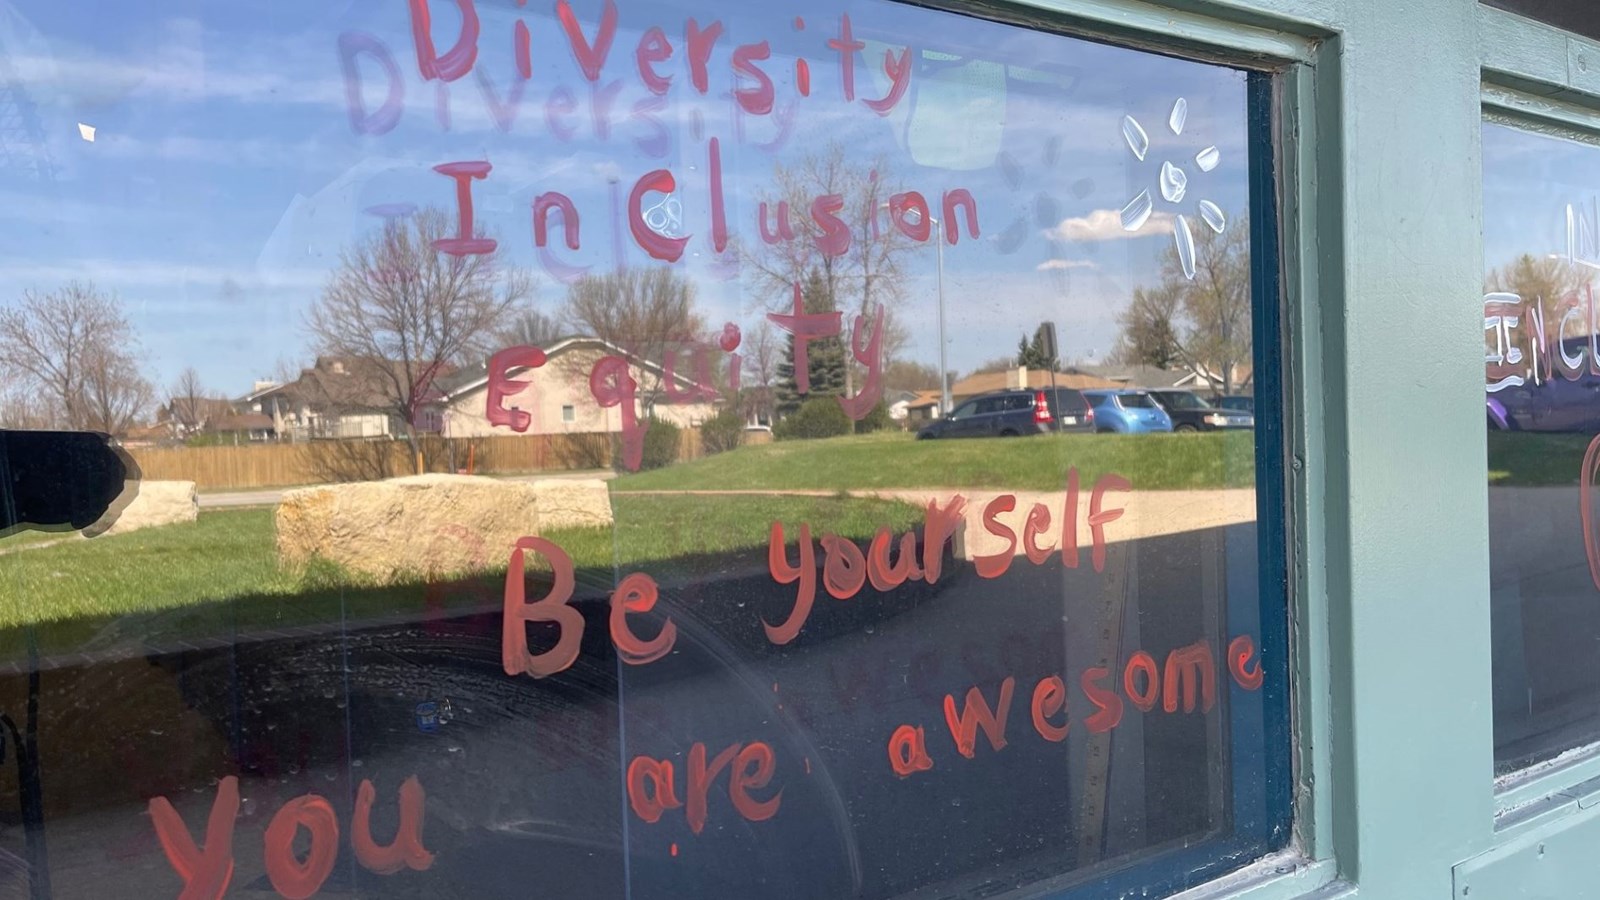 Diversity
Inclusion
Equity
Be yourself
You are awesome